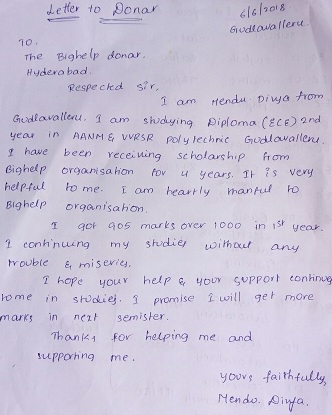 Letter to Donar
6/6/2018
Gudlavalleru.
To.
The Bighelp donar.
Hyderabad.
Respected Sir,
I am Mendu Divya from
Gudlavalleru. I am studying Diploma (ECE) 2nd
year in AANM & VVRSR polytechnic Gudlavalleru.
I have been receiving scholarship from
Bighelp organisation for 4 years. It is very
helpful to me. I am heartly thanful to
Bighelp organisation.
I got 905 marks over 1000 in 1st year.
I continuing my studies without any
trouble & miseries.
I hope your help & your support continue
to me in studies. I promise I will get more
marks in next semister.
Thanks for helping me and
supporting me.
yours faithfully,
Mendu. Divya.